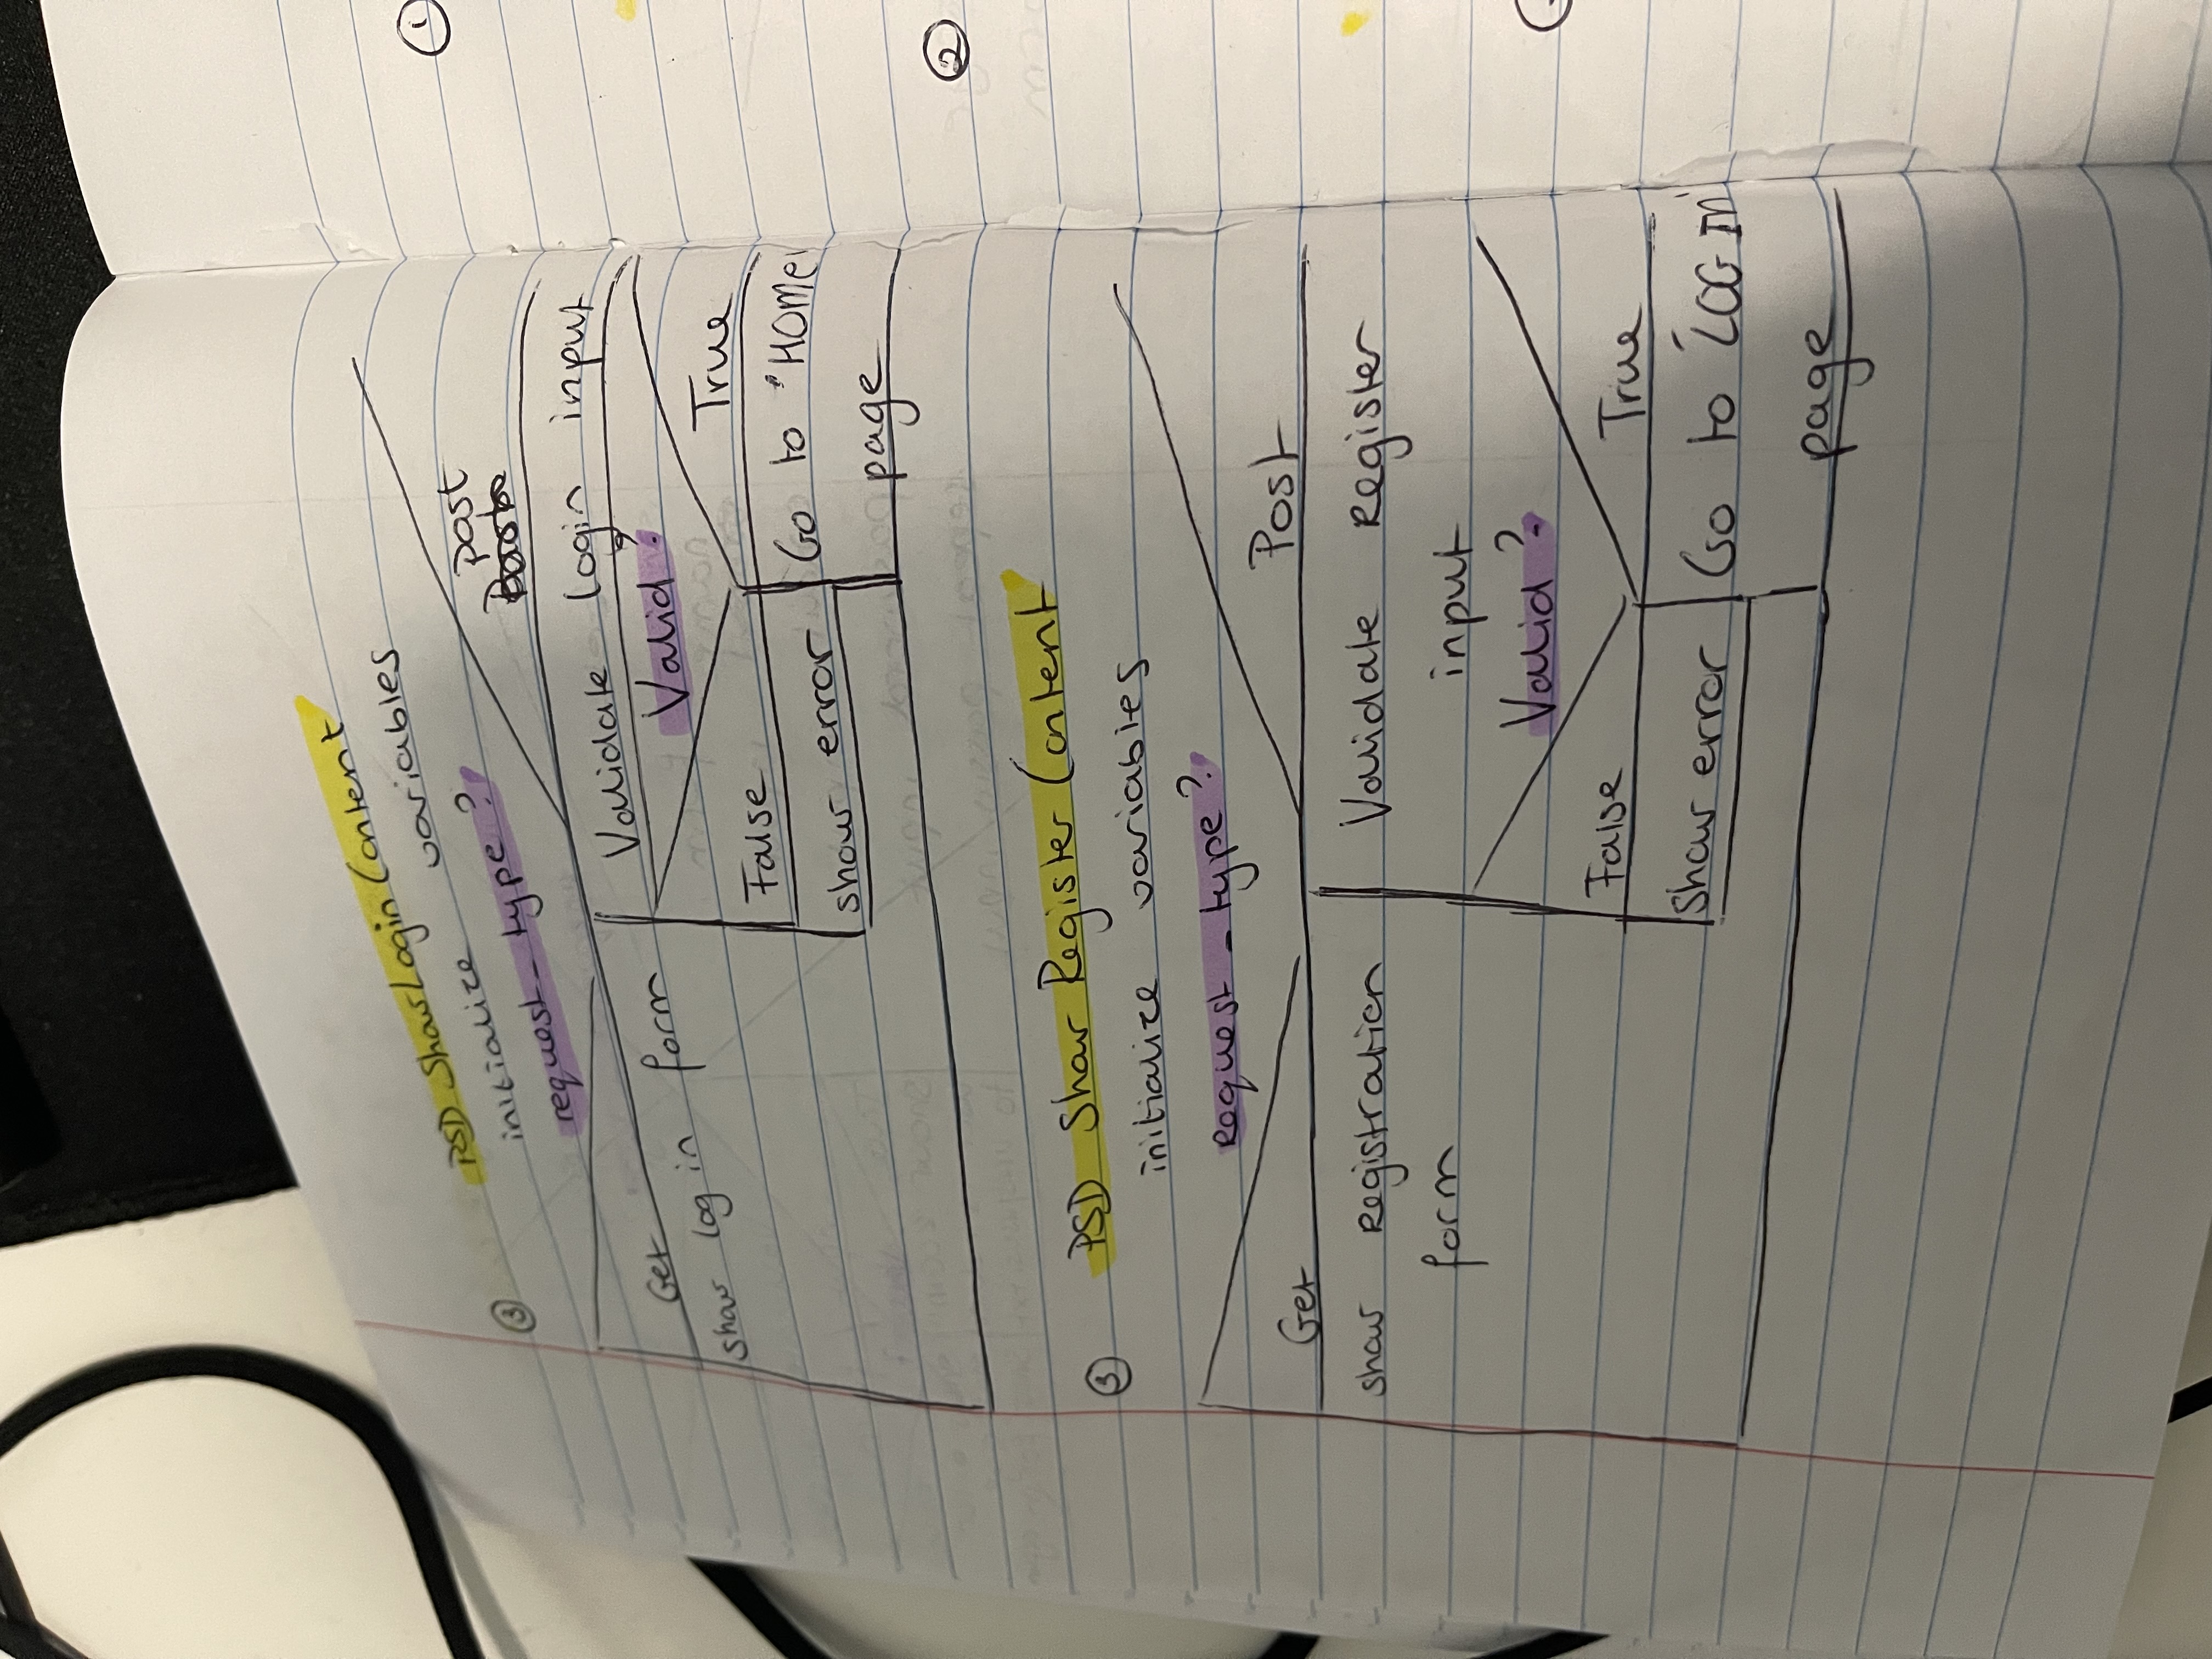 ③ PSD ShowLogin Content
initialize variables
request_type?
post
Get
Validate login input
show log in form
Valid?
False
True
show error
Go to "HOME'
page
③ PSD Show Register Content
initialize variables
request_type?
Get
Post
show registration
form
Validate register
input
Valid?
False
True
Show error
Go to 'LOG IN'
page
①
②